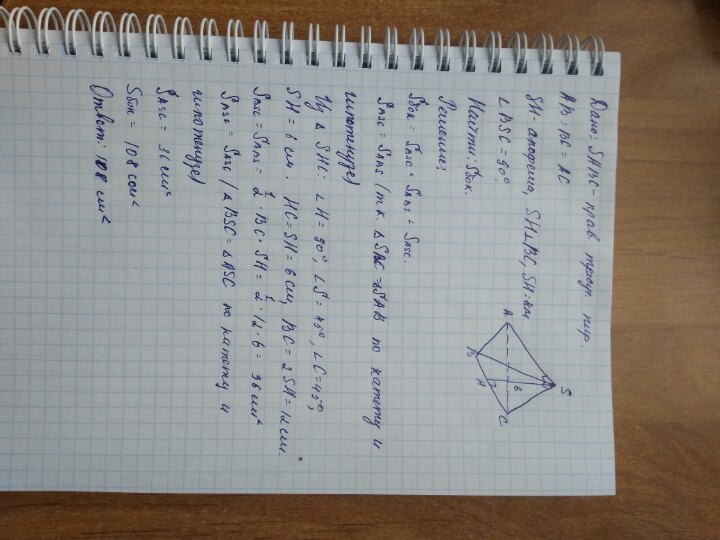 Дано: SABC - прав. треуг. пир.
AB = BC = AC
SH - апофема, SH⊥BC, SH=6см
∠BSC = 90°.
Найти: Sбок.
Решение:
Sбок = SBSC + SABS + SASC.
SBSC = SABS (т.к. △SBC = △SAB по катету и
гипотенузе)
Из △ SHC: ∠H = 90°, ∠S = 45°, ∠C = 45°,
SH = 6 см. HC = SH = 6 см, BC = 2SH = 12 см.
SBSC = SABS = 1/2 · BC · SH = 1/2 · 12 · 6 = 36 см²
SBSC = SASC (△BSC = △ASC по катету и
гипотенузе)
SASC = 36 см²
Sбок = 108 см²
Ответ: 108 см²
S
A
B
H
C
6